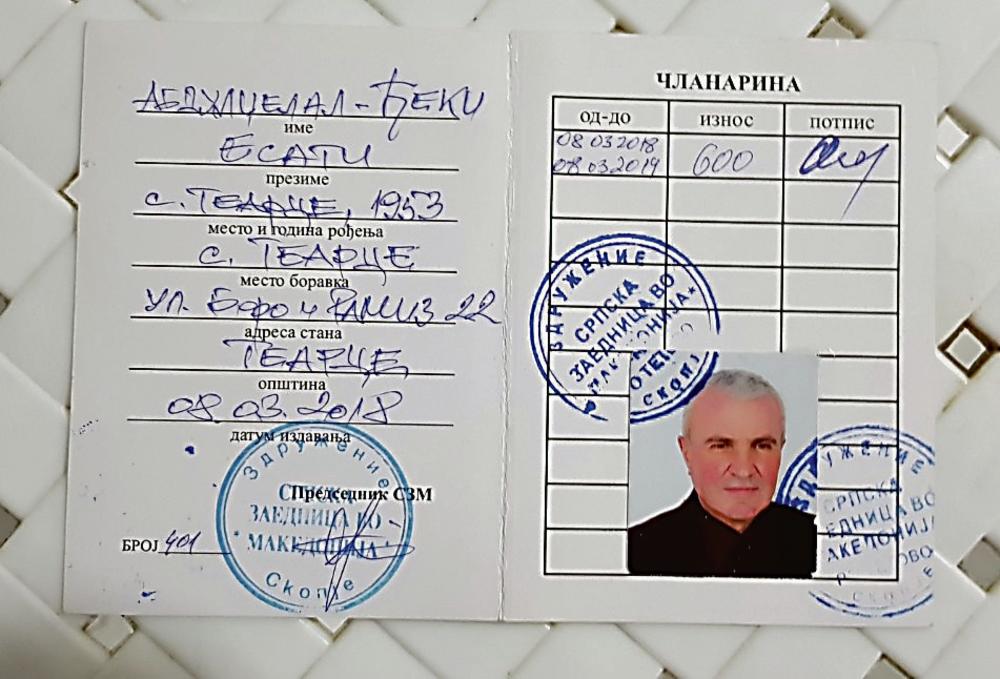 АБДУЛЏЕЛАЛ-ЂЕКИ
име
ЕСАТИ
презиме
с. ТЕАРЦЕ, 1953
место и година рођења
с. ТЕАРЦЕ
место боравка
УЛ. Бофо и РАМИЗ 22
адреса стана
ТЕАРЦЕ
општина
08.03.2018
датум издавања
Председник СЗМ
БРОЈ 401
Здружение
СРПСКА
ЗАЕДНИЦА ВО
МАКЕДОНИЈА
Скопје
ЧЛАНАРИНА
од-до износ потпис
08 03 2018
08.03.2019 600
ЗДРУЖЕНИЕ
СРПСКА
ЗАЕДНИЦА ВО
СКОПЈЕ
ЗДРУЖЕНИЕ
СРПСКА
ЕДНИЦА ВО
АКЕДОНИЈА